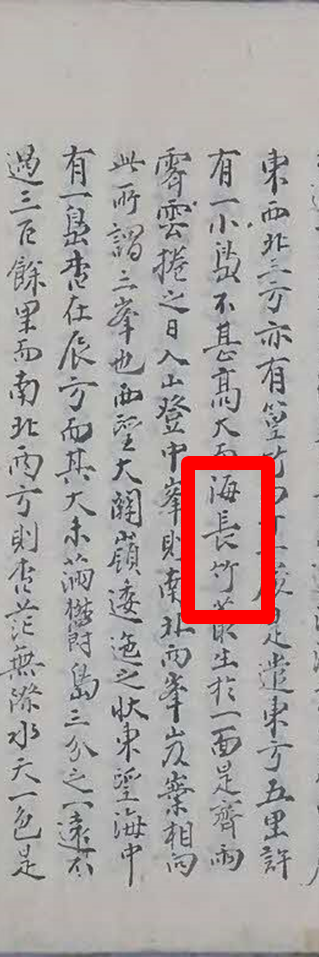 東西北三方亦有篁竹
是遣東方五里許
有一小島不甚高大而海長竹叢生於一面是霽雨
霽雲捲之日入山登中峯則南北兩峯岌嶪相向
此所謂三峯也西望大關嶺逶迤之狀東望海中
有一島杳在辰方而其大未滿蔚島三分之一遠不
過三百餘里而南北兩方則杳茫無際水天一色是